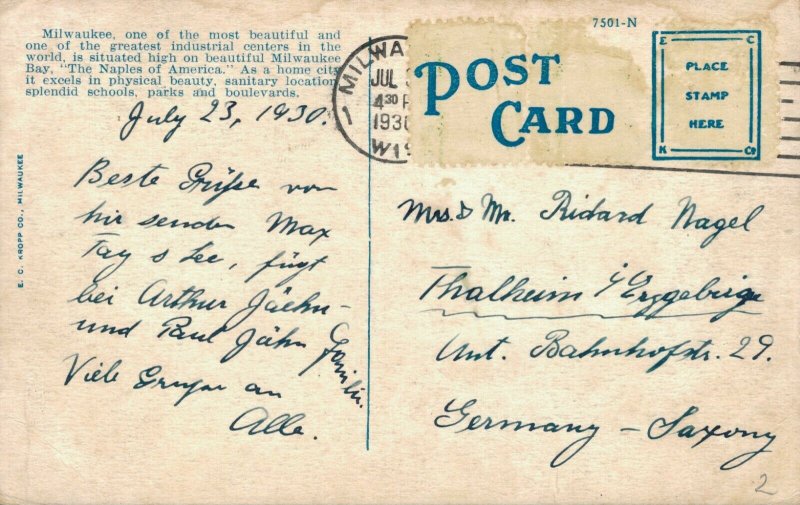 Milwaukee, one of the most beautiful and
one of the greatest industrial centers in the
world, is situated high on beautiful Milwaukee
Bay, "The Naples of America." As a home city
it excels in physical beauty, sanitary location,
splendid schools, parks and boulevards.
July 23, 1930.
Beste Grüße von
hir senden Max
Tag & Lee, fügt
bei Arthur Jaehn-
und Paul Jähn
Familie.
Viele Grüße an
Alle.
E. C. KROPP CO., MILWAUKEE
MILWA
JUL
4 30 P
1930
WIS
7501-N
POST
CARD
E C
PLACE
STAMP
HERE
K Co
Mrs. & Mr. Richard Nagel
Thalheim i/Erzgebirge
Unt. Bahnhofstr. 29.
Germany - Saxony
2